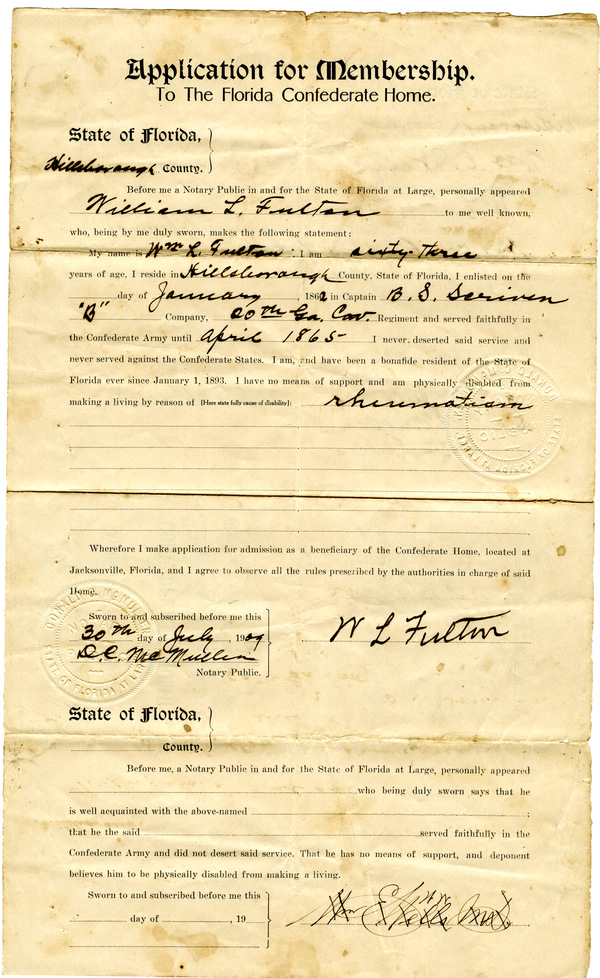 Application for Membership.
To The Florida Confederate Home.
State of Florida,
Hillsborough County.
Before me a Notary Public in and for the State of Florida at Large, personally appeared
William L. Fulton to me well known,
who, being by me duly sworn, makes the following statement:
My name is Wm L. Fulton : I am sixty-three
years of age, I reside in Hillsborough County, State of Florida, I enlisted on the
day of January, 1862 in Captain B. S. Scriven
"B" Company, 20th Ga. Cav. Regiment and served faithfully in
the Confederate Army until April 1865 I never deserted said service and
never served against the Confederate States. I am, and have been a bonafide resident of the State of
Florida ever since January 1, 1893. I have no means of support and am physically disabled from
making a living by reason of [Here state fully cause of disability]: rheumatism
Wherefore I make application for admission as a beneficiary of the Confederate Home, located at
Jacksonville, Florida, and I agree to observe all the rules prescribed by the authorities in charge of said
Home.
Sworn to and subscribed before me this
30th day of July, 1909
D. C. McMullen
Notary Public.
W L Fulton
State of Florida,
County.
Before me, a Notary Public in and for the State of Florida at Large, personally appeared
who being duly sworn says that he
is well acquainted with the above-named
that he the said served faithfully in the
Confederate Army and did not desert said service. That he has no means of support, and deponent
believes him to be physically disabled from making a living.
Sworn to and subscribed before me this
day of , 19